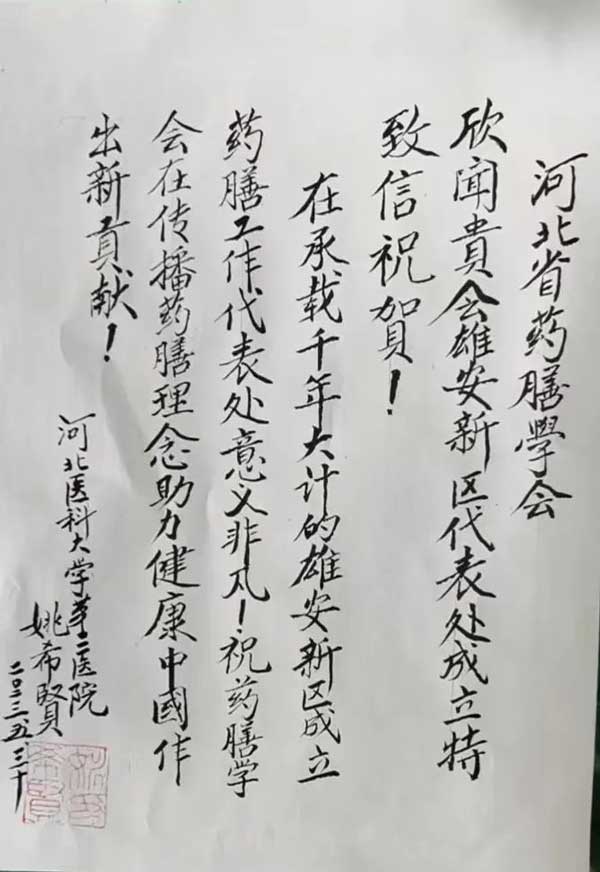 河北省药膳學会
欣聞貴会雄安新区代表处成立特
致信祝賀！
在承载千年大计的雄安新区成立
药膳工作代表处意义非凡！祝药膳学
会在传播药膳理念助力健康中國作
出新貢献！
河北医科大学第二医院
姚希賢
二〇二三.五.三十